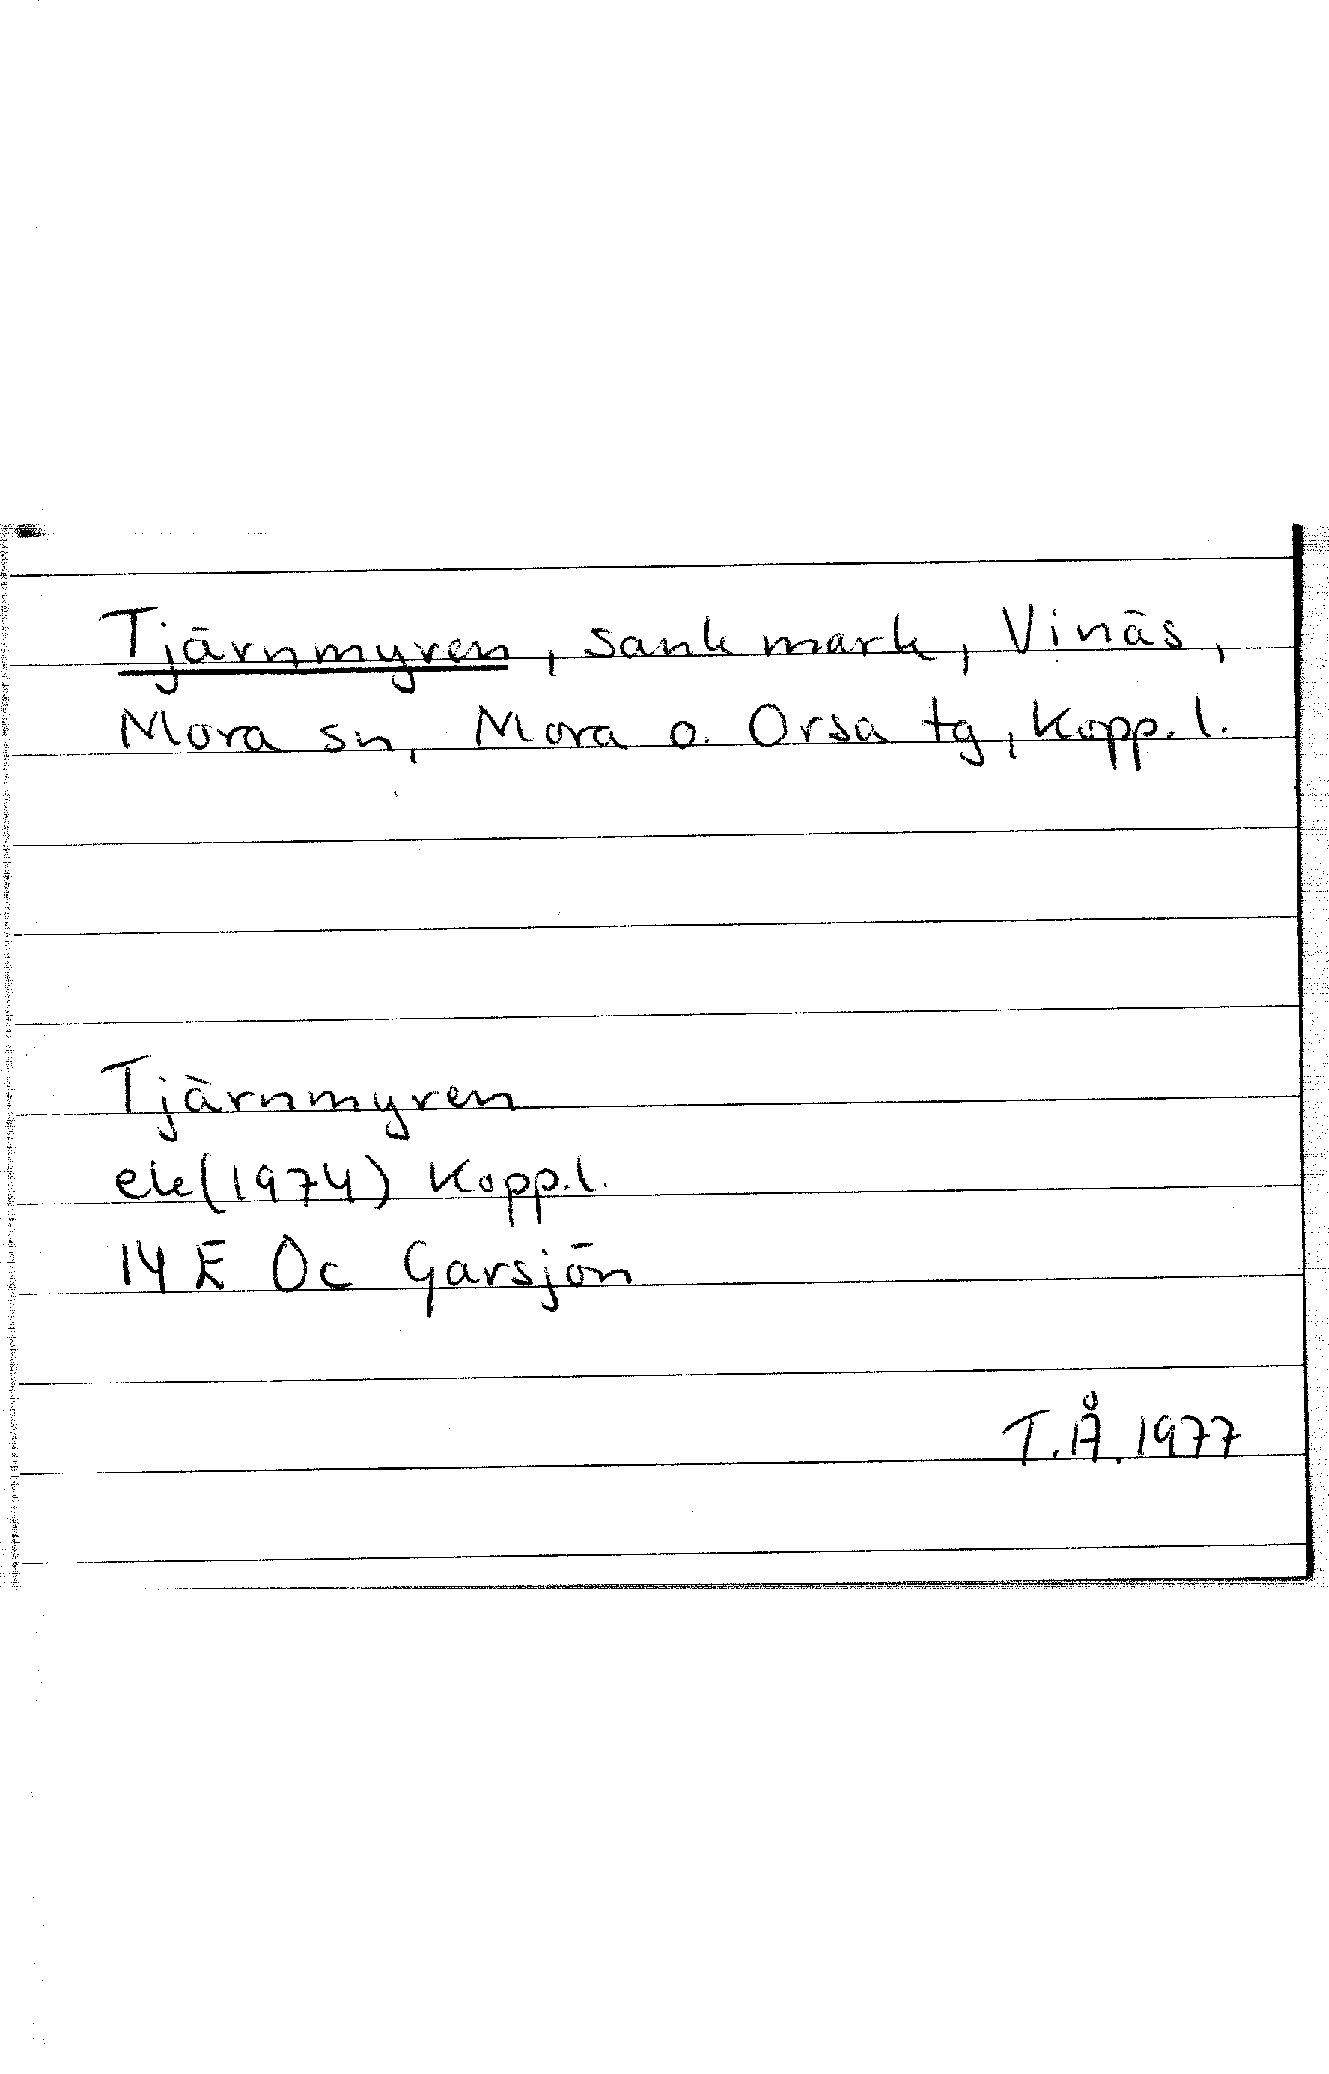 Tjärnmyren, sank mark, Vinäs,
Mora sn, Mora o. Orsa tg, Kopp. l.
Tjärnmyren
ek (1974) Kopp.l.
14 E Oc Garsjön
T.Å. 1977